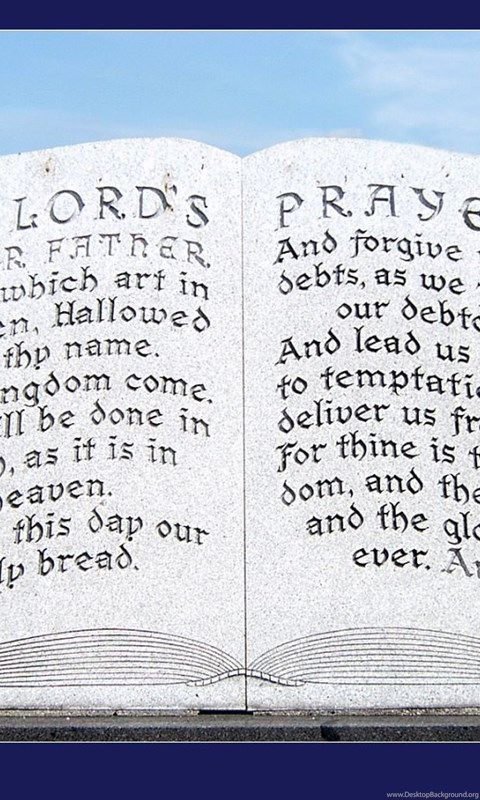 LORD'S
R FATHER
which art in
en, Hallowed
thy name.
ngdom come.
ll be done in
, as it is in
eaven.
this day our
ly bread.
PRAYE
And forgive
debts, as we
our debto
And lead us
to temptati
deliver us fr
For thine is t
dom, and the
and the glo
ever. A
www.DesktopBackground.org